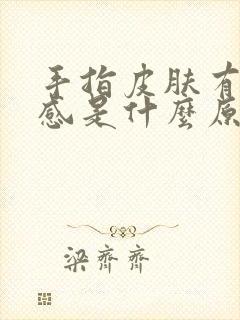 手指皮肤有
感是什麼原
梁齊齊